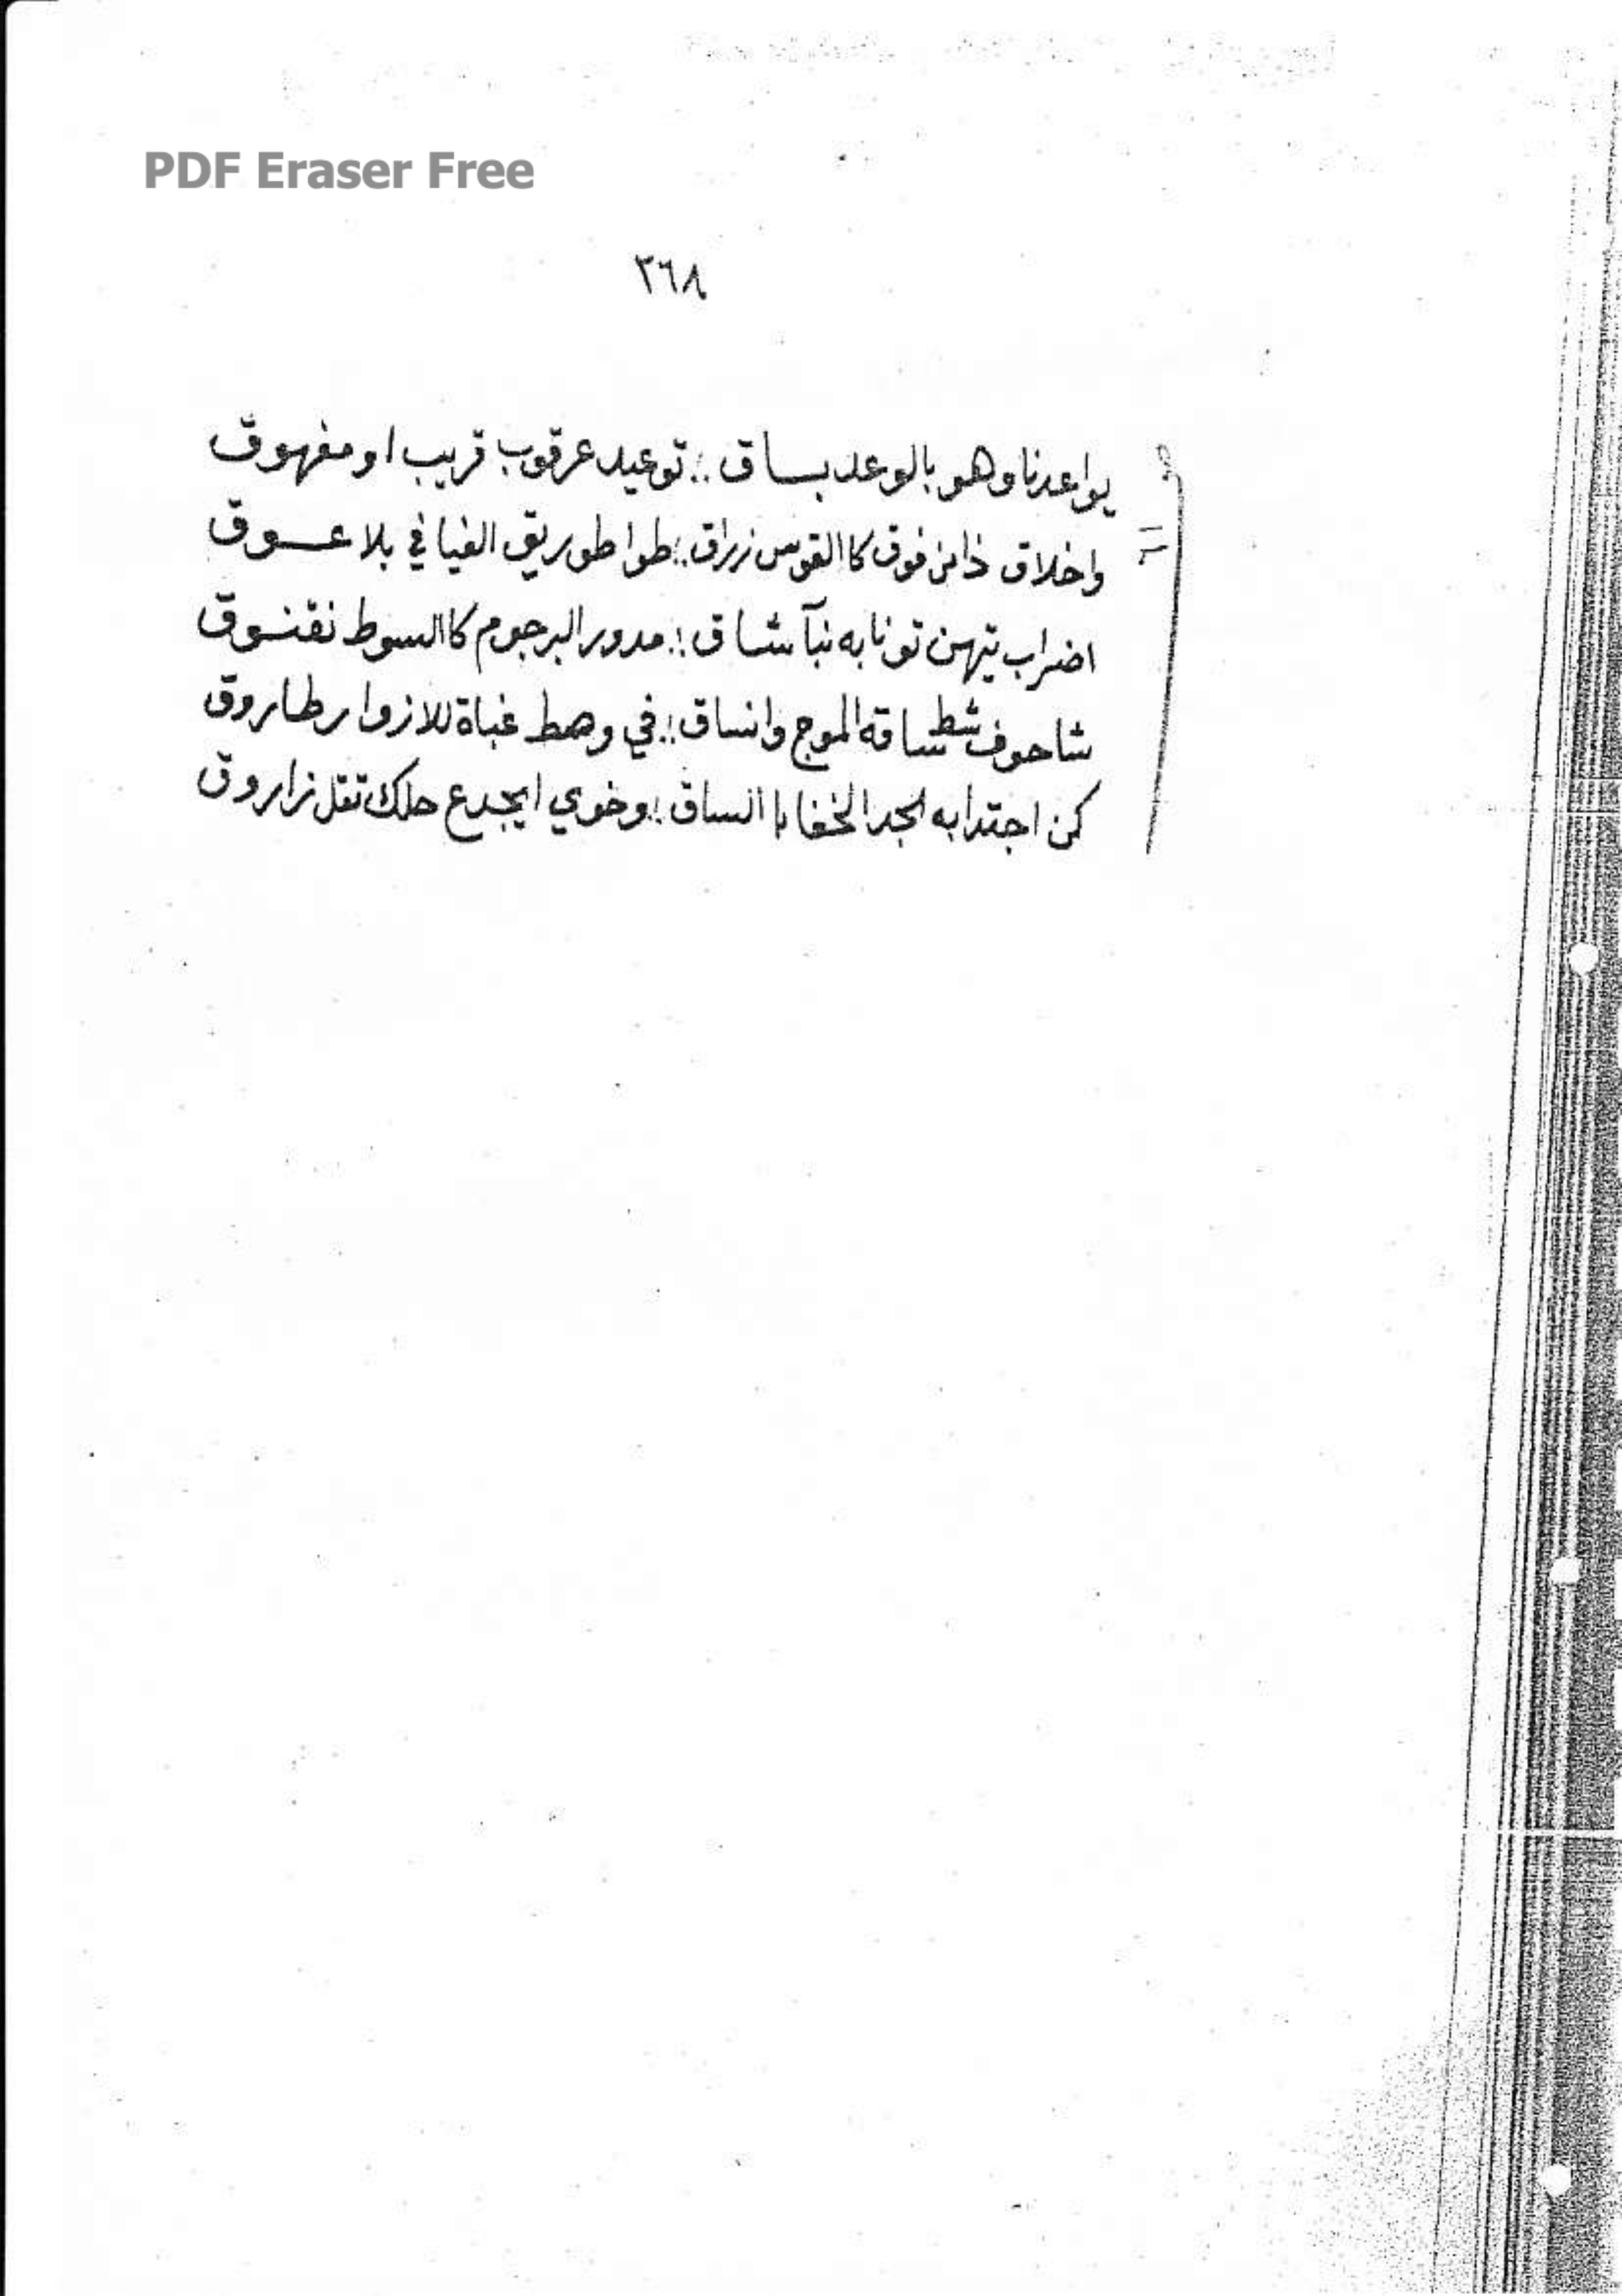 PDF Eraser Free
٣٦٨
يواعدنا وهو بالوعد بساق .. توعيد عرقوب قريب او مفهوق
واخلاق ذا من فوق كا القوس زراق .. طوا طوريق الفيافي بلا عوق
اضراب تيهن تونابه نبآ شاق .. مدور البرجوم كا السوط نقنوق
شاحوف شط ساقه الموج وانساق .. في وهط غباة للازوار طاروق
كن اجتدابه لجد الخفا با انساق .. وخوي ايجدع حلك تقل زاروق